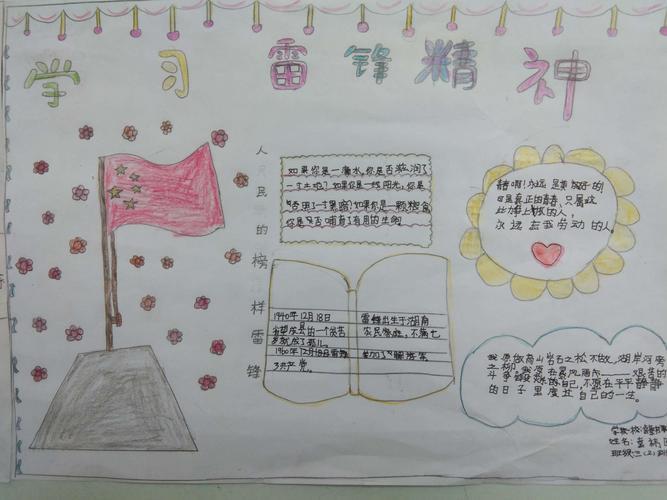 学习雷锋精神
人民的榜样雷锋
如果你是一滴水,你是否滋润了
一寸土地?如果你是一线阳光,你是
否照亮了一寸黑暗?如果你是一颗粮食
你是否哺育了有用的生命
青春啊!永远是美好的!
可是真正的青春,只属于
力争上游的人,
永远忘我劳动的人。
1940年12月18日
雷锋出生于湖南
农民家庭,不满七
岁就成了孤儿。
1960年12月
参加了人民解放军
共产党。
我愿做高山岩石之松不做,湖岸河旁
之柳。我愿在暴风雨中——艰苦的
斗争中锻炼自己,不愿在平平静静
的日子里度过自己的一生。
学校:
姓名:
班级:三(2)